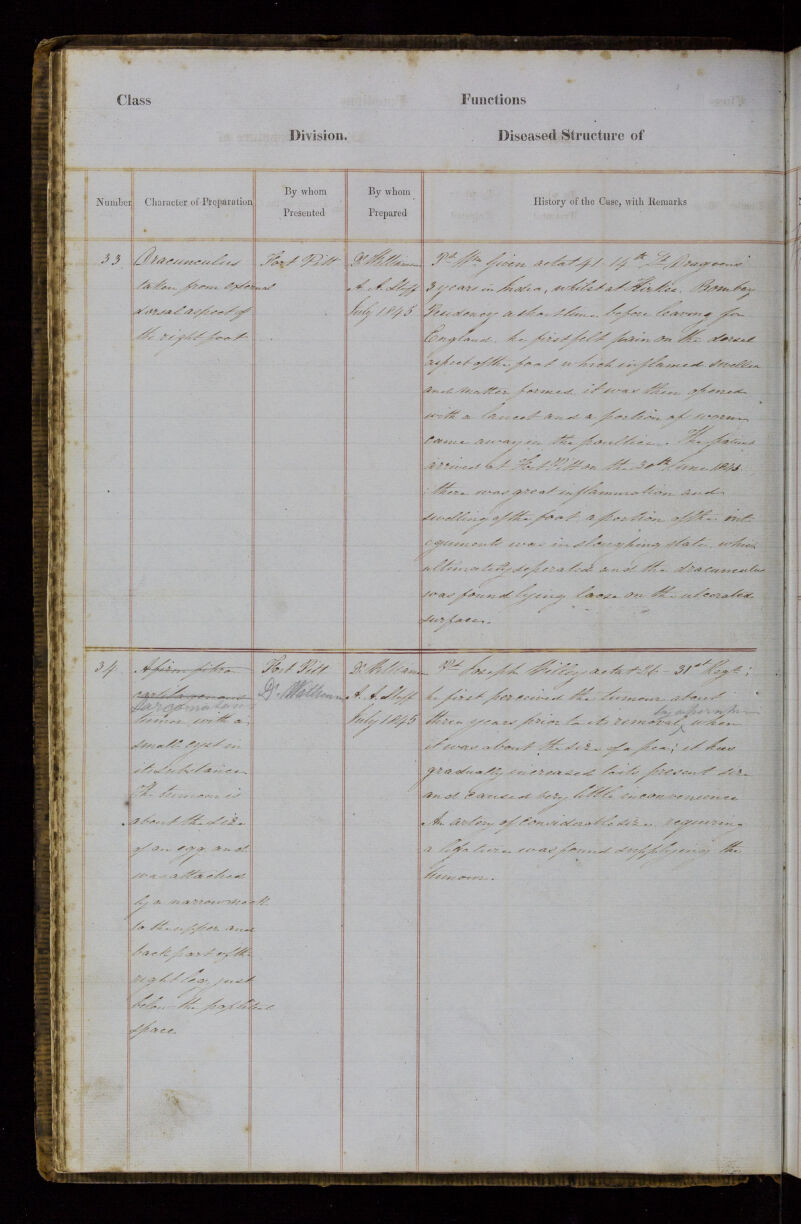 Class Functions
Division. Diseased Structure of
Number
Character of Preparation
By whom
Presented
By whom
Prepared
History of the Case, with Remarks
33
Dracunculus
taken from external
dorsal aspect of
the right foot
Fort Pitt
Dr Williams
A. A. Staff
July 1845
Pt Wm Given aetat 41 14th Lt Dragoons
3 years in India, whilst at Kirkee Bombay
Presidency a short time before leaving for
England he first felt pain on the dorsal
aspect of the foot which inflamed swelled
and matter formed it was then opened
with a lancet and a portion of worm
came away in the poultice. The patient
arrived at Fort Pitt on the 30th June 1845
there was great inflammation and
swelling of the foot a portion of the int
eguments was in sloughing state which
ultimately seperated and the dracunculus
was found lying loose on the ulcerated
surface.
34
A firm fibro
cartilaginous
Sarcomatous
tumor with a
small cyst in
its substance
The tumour is
about the size
of an egg and
was attached
by a narrow neck
to the upper and
back part of the
right leg, just
below the popliteal
space
Fort Pitt
Dr Williams
Dr Williams
A. A. Staff
July 1845
Pt Joseph aetat 26 - 31st Regt;
he first perceived the tumour about
three years prior to its removal, when
it was about the size of a pea; it has
gradually increased to its present size
and caused very little inconvenience
An artery of considerable size requiring
a ligature was found supplying the
tumour.